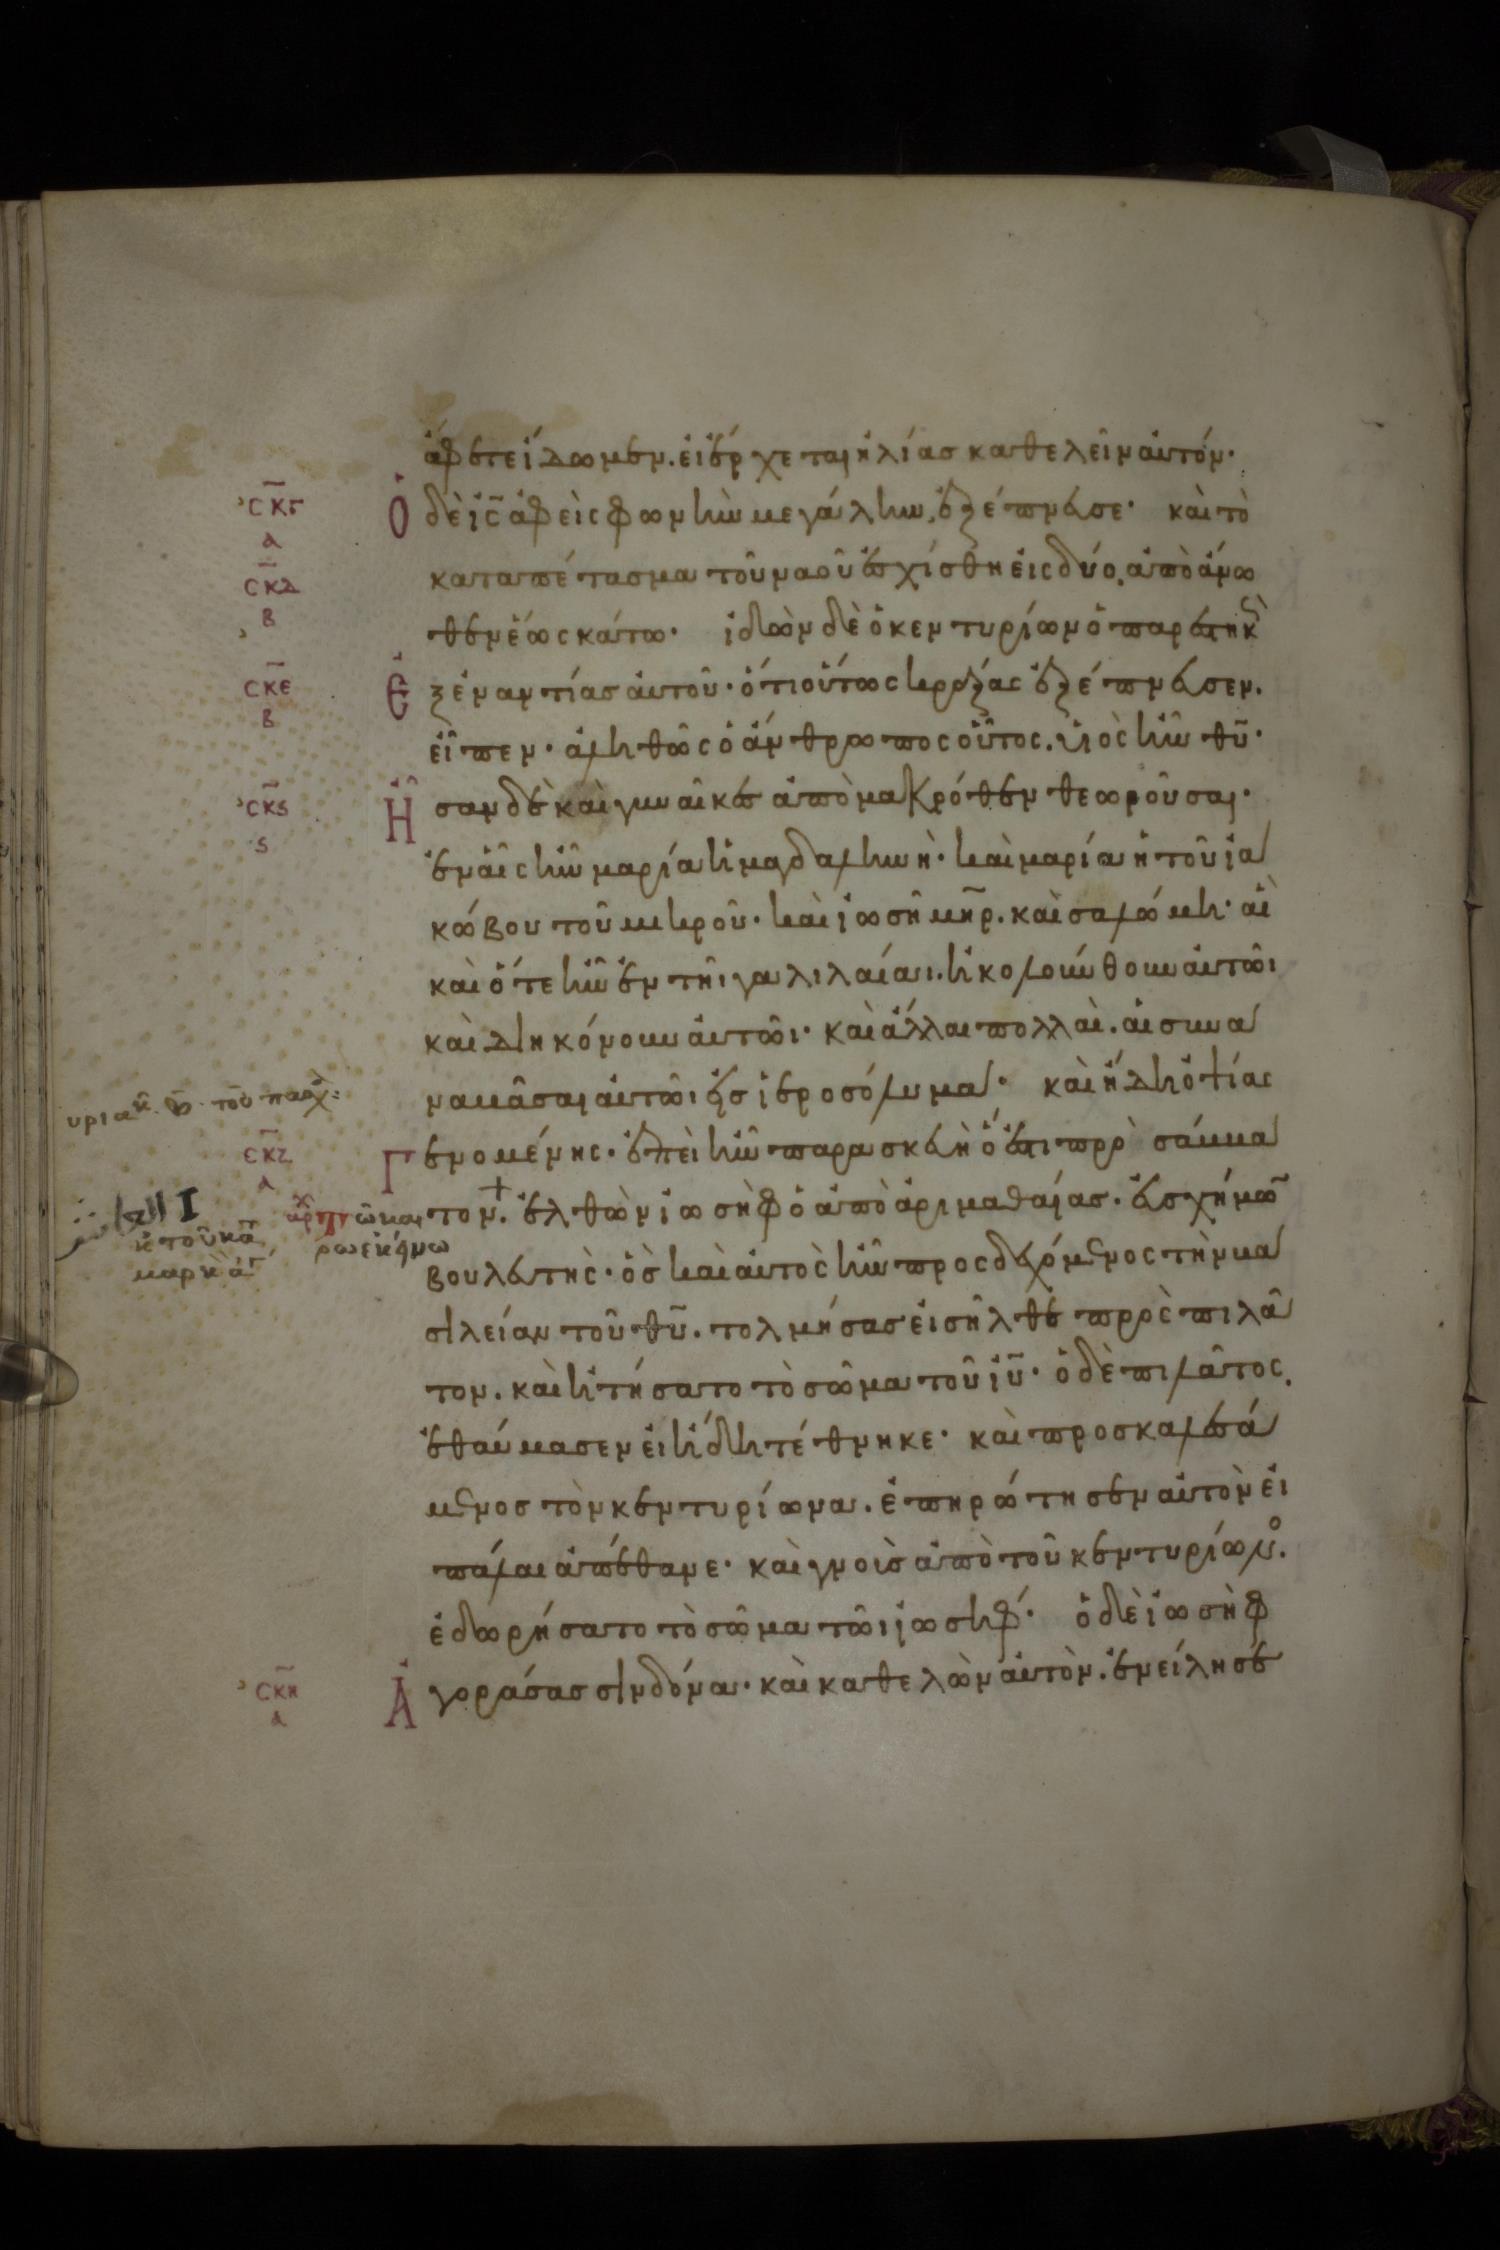 ἄφετε ἴδωμεν. εἰ ἔρχεται ἠλίας καθελεῖν αὐτόν·
Ὁ δὲ ι̅ς̅ ἀφεὶς φωνὴν μεγάλην, ἐξέπνευσε· καὶ τὸ
καταπέτασμα τοῦ ναοῦ ἐσχίσθη εἰς δύο, ἀπὸ ἄνω
θεν ἕως κάτω· ἰδὼν δὲ ὁ κεντυρίων ὁ παρεστηκὼς
Ἐξεναντίας αὐτοῦ· ὅτι οὕτως κράξας ἐξέπνευσεν.
εἶπεν· ἀληθῶς ὁ ἄνθρωπος οὗτος. υἱὸς ἦν θ̅υ̅·
Ἦσαν δὲ καὶ γυναῖκες ἀπὸ μακρόθεν θεωροῦσαι·
ἐν αἷς ἦν μαρία ἡ μαγδαληνὴ· καὶ μαρία ἡ τοῦ ἰα
κώβου τοῦ μικροῦ· καὶ ἰωσῆ μ̅η̅ρ̅. καὶ σαλώμη· αἳ
καὶ ὅτε ἦν ἐν τῆι γαλιλαίαι. ἠκολούθουν αὐτῶι
καὶ διηκόνουν αὐτῶι· καὶ ἄλλαι πολλαὶ. αἱ συνα
ναβᾶσαι αὐτῶι εἰς ἱεροσόλυμα· καὶ ἤδη ὀψίας
Γενομένης· ἐπεὶ ἦν παρασκευὴ ὅ ἐστι πρὸ σάββα
τον. ἐλθὼν ἰωσὴφ ὁ ἀπὸ ἀριμαθαίας. εὐσχήμων
βουλευτὴς· ὃς καὶ αὐτὸς ἦν προσδεχόμενος τὴν βα
σιλείαν τοῦ θ̅υ̅. τολμήσας εἰσῆλθε πρὸς πιλᾶ
τον. καὶ ἠτήσατο τὸ σῶμα τοῦ ι̅υ̅· ὁ δὲ πιλᾶτος
ἐθαύμασεν εἰ ἤδη τέθνηκε· καὶ προσκαλεσά
μενος τὸν κεντυρίωνα. ἐπηρώτησεν αὐτὸν εἰ
πάλαι ἀπέθανε· καὶ γνοὺς ἀπὸ τοῦ κεντυρίωνος.
ἐδωρήσατο τὸ σῶμα τῶι ἰωσήφ· ὁ δὲ ἰωσὴφ
Ἀγοράσας σινδόνα. καὶ καθελὼν αὐτὸν. ἐνείλησε
ϲκγ
α
ϲκδ
β
ϲκε
β
ϲκϛ
ϛ
υριακ. τοῦ πασχ:
ϲκζ
α
ϲκη
α